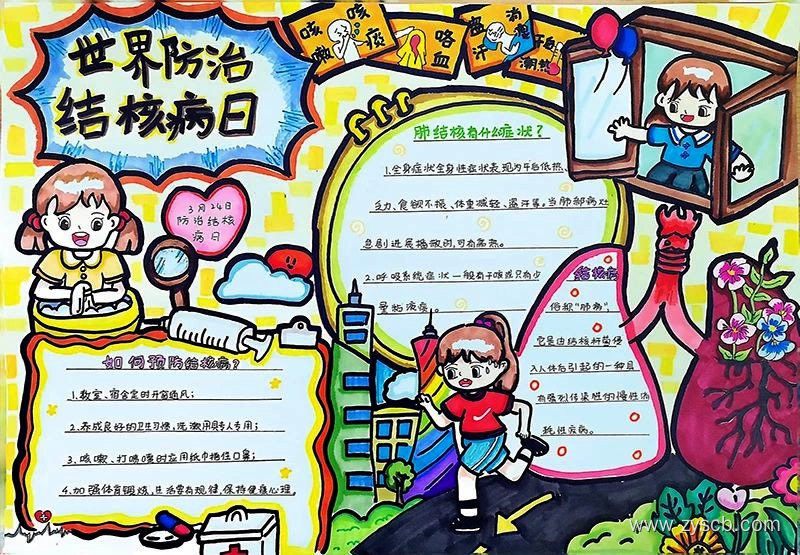 世界防治
结核病日
咳嗽
咳痰
咯血
盗汗
消瘦
午后潮热
3月24日
防治结核
病日
肺结核有什么症状？
1.全身症状全身性症状表现为午后低热、
乏力、食欲不振、体重减轻、盗汗等。当肺部病灶
急剧进展播散时,可有高热。
2.呼吸系统症状一般有干咳或只有少
量粘液痰。
结核病
俗称"肺痨",
它是由结核杆菌侵
入人体后引起的一种具
有强烈传染性的慢性消
耗性疾病。
如何预防结核病？
1.教室、宿舍定时开窗通风；
2.养成良好的卫生习惯,洗漱用具专人专用；
3.咳嗽、打喷嚏时应用纸巾捂住口鼻；
4.加强体育锻炼,生活要有规律,保持健康心理。
www.zyscb.com